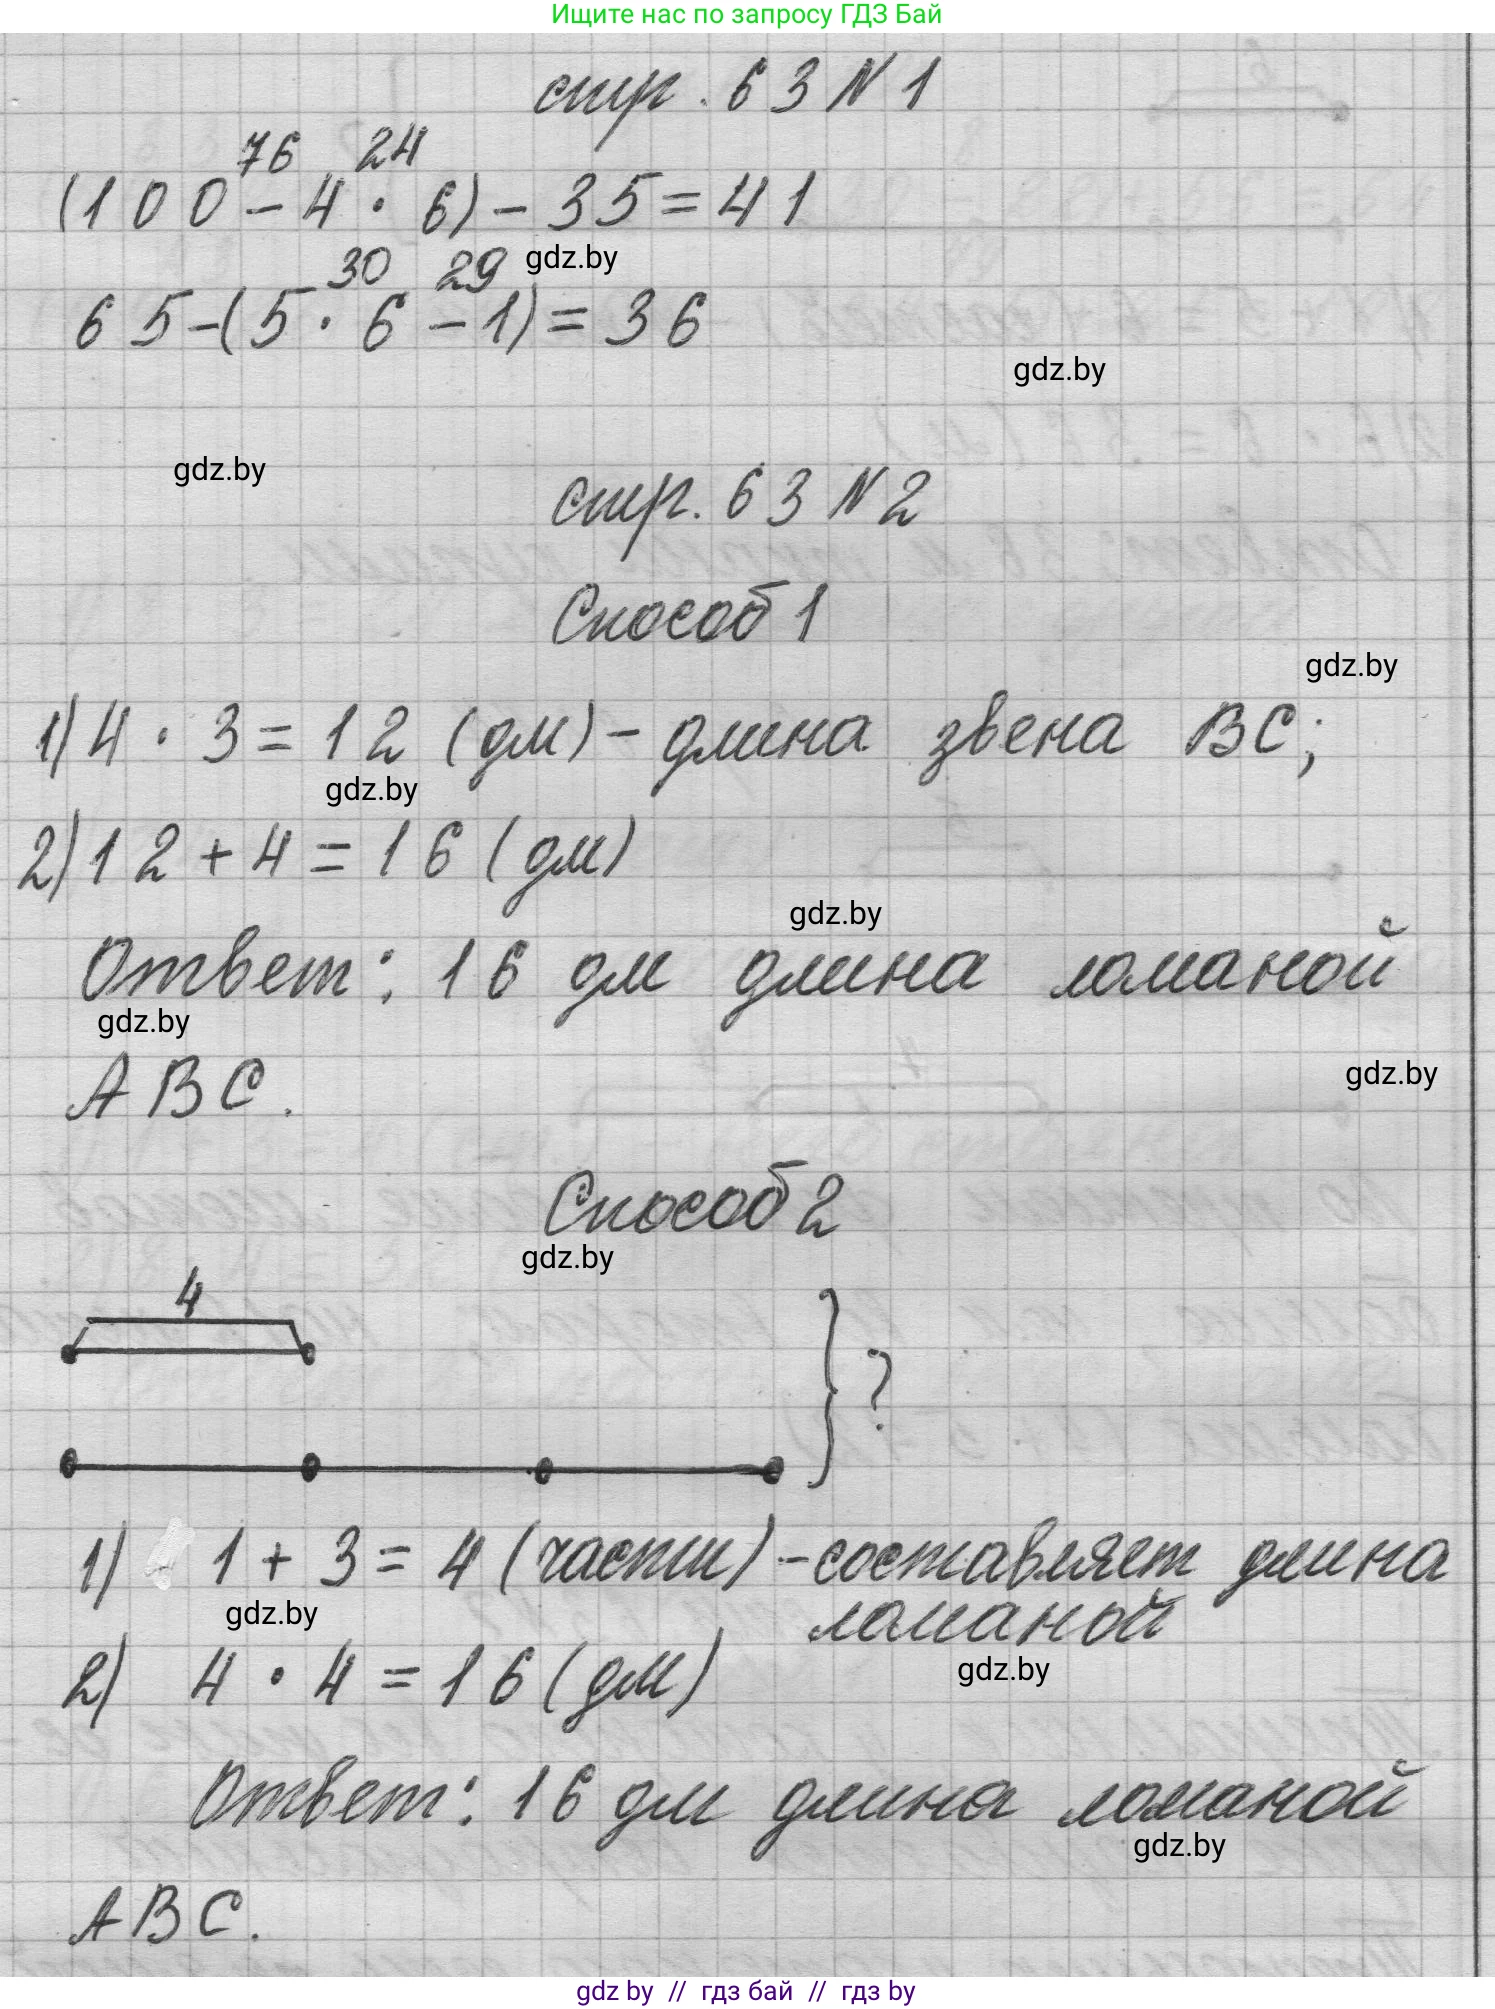 Ищите нас по запросу ГДЗ Бай
стр. 63 N 1
76 24
(100 - 4 · 6) - 35 = 41
30 29 gdz.by
65 - (5 · 6 - 1) = 36
gdz.by
gdz.by
стр. 63 N 2
Способ 1
gdz.by
1) 4 · 3 = 12 (дм) - длина звена ВС;
gdz.by
2) 12 + 4 = 16 (дм)
gdz.by
Ответ: 16 дм длина ломаной
gdz.by
АВС.
gdz.by
Способ 2
gdz.by
4
?
1) 1 + 3 = 4 (части) - составляет длина
gdz.by ломаной
2) 4 · 4 = 16 (дм)
gdz.by
Ответ: 16 дм длина ломаной
gdz.by
АВС.
gdz by // гдз бай // гдз by